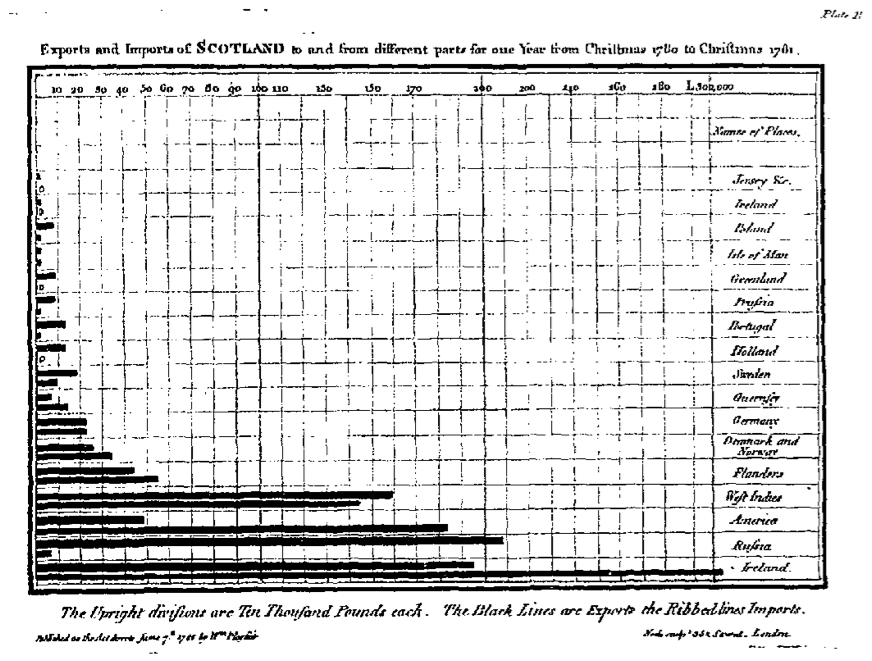 Plate
Exports and Imports of SCOTLAND to and from different parts for one Year from Chriſtmas 1780 to Chriſtmas 1781.
10 20 30 40 50 60 70 80 90 100 110 130 150 170 200 200 240 160 180 L.300,000
Names of Places.
Jersey &c.
Ireland
Poland
Isle of Man
Greenland
Pruſsia
Portugal
Holland
Sweden
Guernſey
Germany
Denmark and
Norway
Flanders
West Indies
America
Ruſsia
Ireland.
The Upright diviſions are Ten Thouſand Pounds each. The Black Lines are Exports the Ribbed lines Imports.
Published as the Act directs June 7.th 1786 by W.m Playfair
Neele sculp.t 352 Strand. London